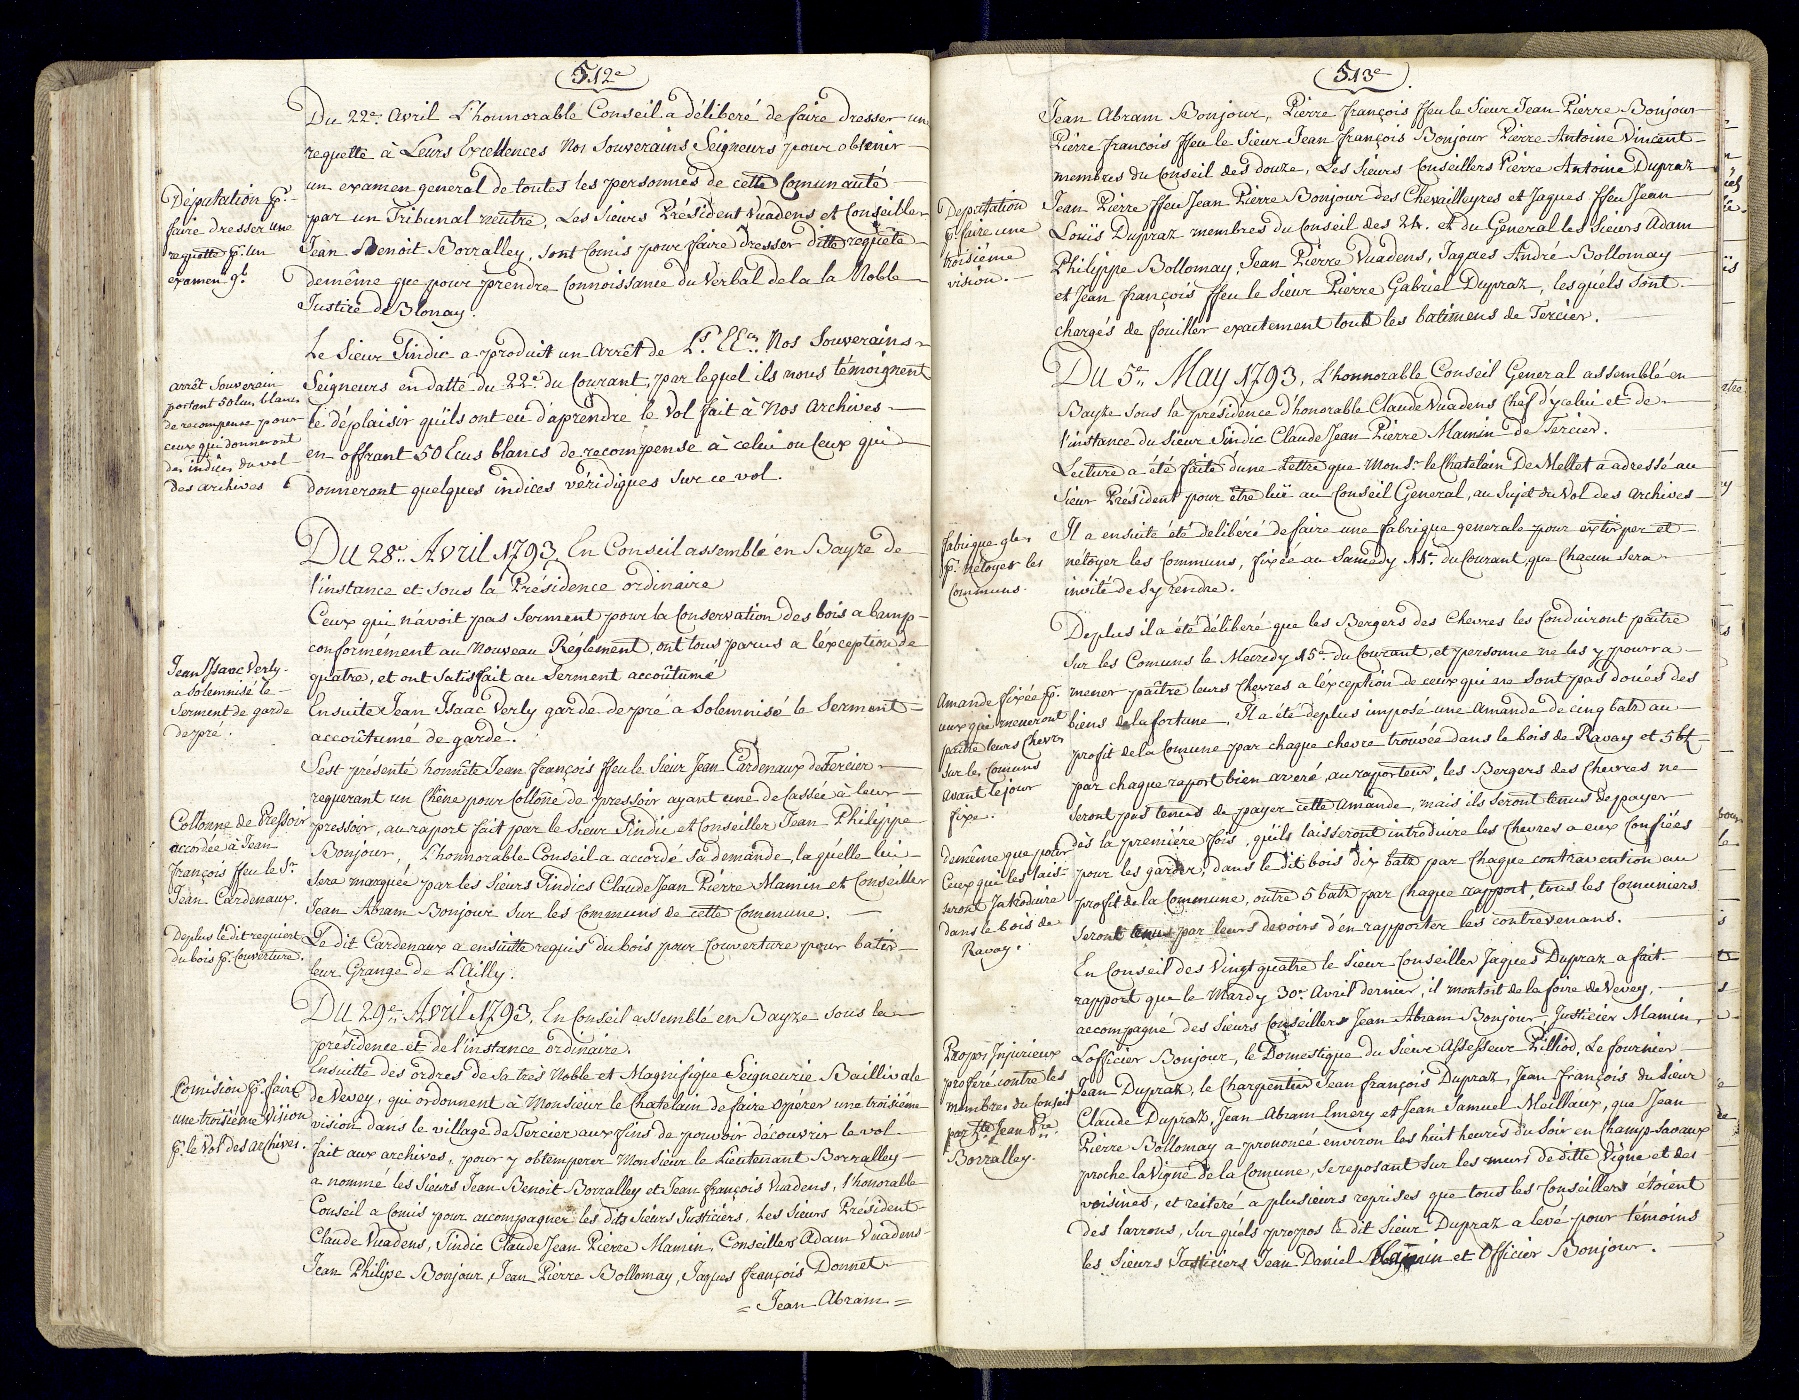 512e
Du 22e. Avril L'honnorable Conseil a délibéré de faire dresser une
requette à Leurs Excellences Nos Souverains Seigneurs pour obtenir
un examen general de toutes les personnes de cette Comunauté
par un Tribunal neutre, Les Sieurs Président Vuadens et Conseiller
Jean Benoit Borralley, sont Comis pour faire dresser ditte requête
demême que pour prendre Connoissance du Verbal de la la Noble
Justice de Blonay.
Députation pr.
faire dresser une
requette pr. un
examen gl.
Le Sieur Sindic a produit un Arrêt de Ls. EEces. Nos Souverains
Seigneurs en datte du 22e. du Courant, par lequel ils nous témoignent
le déplaisir qu'ils ont eu d'aprendre le Vol fait à Nos Archives
en offrant 50 Ecus blancs de recompense à celui ou Ceux qui
donneront quelques indices véridiques Sur ce vol.
arrêt Souverain
portant 50 Ecus blancs
de recompense pour
ceux qui donneront
des indices du vol
des archives
Du 28e. Avril 1793. En Conseil assemblé en Bayze de
l'instance et sous la Présidence ordinaire
Ceux qui n'avoit pas Serment pour la Conservation des bois a bamp
conformément au Nouveau Réglement, ont tous parus a l'exception de
quatre, et ont Satisfait au Serment accoûtumé
Ensuite Jean Isaac Verly garde de pré a Solemnisé le Serment
accoûtumé de garde.
Jean Isaac Verly
a Solemnisé le
Serment de garde
de pré.
S'est présenté honnête Jean François ffeu le Sieur Jean Cardenaux de Tercier
requerant un Chêne pour Collone de pressoir ayant une de Cassée à leur
pressoir, au raport fait par le Sieur Sindic et Conseiller Jean Philippe
Bonjour, L'honnorable Conseil a accordé Sa demande, laquelle lui
Sera marquée par les Sieurs Sindics Claude Jean Pierre Mamin et Conseiller
Jean Abram Bonjour Sur les Communs de cette Commune.
Collonne de Pressoir
accordée à Jean
François ffeu le Sr.
Jean Cardenaux.
Le dit Cardenaux a ensuitte requis du bois pour Couverture pour batir
leur Grange de L'Ailly.
Deplus le dit requient
du bois pr. Couverture.
Du 29e. Avril 1793. En Conseil assemblé en Bayze sous la
présidence et de l'instance ordinaire.
Ensuitte des ordres de Sa très Noble et Magnifique Seigneurie Baillivale
de Vevey, qui ordonnent à Monsieur le Chatelain de faire opérer une troisiéme
vision dans le village de Tercier aux fins de pouvoir découvrir le vol
fait aux archives, pour y obtemperer Monsieur le Lieutenant Borralley
a nommé les Sieurs Jean Benoit Borralley et Jean François Vuadens, l'honorable
Conseil a Comis pour accompagner les dits Sieurs Justiciers, Les Sieurs Président
Claude Vuadens, Sindic Claude Jean Pierre Mamin, Conseillers Adam Vuadens
Jean Philipe Bonjour, Jean Pierre Bollomay, Jaques François Donnet
= Jean Abram =
Comision pr. faire
une troisième Vision
pr. le Vol des archives.
513e
Jean Abram Bonjour, Pierre François ffeu le Sieur Jean Pierre Bonjour
Pierre François ffeu le Sieur Jean François Bonjour Pierre Antoine Vincent
membres du Conseil des douze, Les Sieurs Conseillers Pierre Antoine Dupraz
Jean Pierre ffeu Jean Pierre Bonjour des Chevalleyres et Jaques ffeu Jean
Louïs Dupraz membres du Conseil des 24. et du General les Sieurs Adam
Philippe Bollomay, Jean Pierre Vuadens, Jaques André Bollomay
et Jean François ffeu le Sieur Pierre Gabriel Dupraz, lesquéls Sont
chargés de fouiller exactement tout les batimens de Tercier.
Deputation
pr. faire une
troisiéme
vision.
Du 5e. May 1793, L'honnorable Conseil General assemblé en
Bayze sous la présidence d'honorable Claude Vuadens Chef d'ycelui et de
l'instance du Sieur Sindic Claude Jean Pierre Mamin de Tercier.
Lecture a été faite d'une Lettre que Monsr. le Chatelain De Mellet a adressé au
Sieur Président pour être luë au Conseil General, au Sujet du Vol des Archives
Il a ensuite été délibéré de faire une fabrique generale pour extirper et
nétoyer les Communs, fixée au Samedy 11e. du Courant, que Chacun Sera
invité de S'y rendre.
fabrique gle.
pr. netoyer les
Communs.
Deplus il a été délibéré que les Bergers des Chevres les Conduiront paître
Sur les Comuns le Mecredy 15e. du Courant, et personne ne les y pourra
mener paître leurs Chevres a l'exception de ceux qui ne Sont pas doués des
biens de la fortune, Il a été deplus imposé une Amande de cinq batz au
profit de la Comune par chaque chevre trouvée dans le bois de Ravay et 5 bz
par chaque raport bien averé, au raporteur, les Bergers des Chevres ne
Seront pas tenus de payer cette amande, mais ils Seront tenus de payer
dès la premiére fois, qu'ils laisseront introduire les Chevres a eux Confiées
pour les garder, dans le dit bois dix batz par Chaque contravention au
profit de la Commune, outre 5 batz par chaque rapport, tous les Comuniers
Seront tenus par leurs devoirs d'en rapporter les contrevenans.
Amande fixée pr.
ceux qui meneront
paitre leurs Chevres
Sur les Comuns
avant le jour
fixe.
demême que pour
Ceux que les lais-
seront Introduire
dans le bois de
Ravay.
En Conseil des Vingt quatre le Sieur Conseiller Jaques Dupraz a fait
rapport que le Mardy 30e. Avril dernier, il montoit de la foire de Vevey,
accompagné des Sieurs Conseillers Jean Abram Bonjour, Justicier Mamin,
L'officier Bonjour, le Domestique du Sieur Assesseur Pilliod, Le fournier
Jean Dupraz, le Charpentier Jean François Dupraz, Jean François du Sieur
Claude Dupraz, Jean Abram Emery et Jean Samuel Meillaux, que Jean
Pierre Bollomay a prononcé environ les huit heures du Soir en Champ Savaux
proche la Vigne de la Comune, Se reposant Sur les murs de ditte Vigne et des
voisines, et reiteré a plusieurs reprises que tous les Conseillers étoient
des larrons, Sur quéls propos le dit Sieur Dupraz a levé pour témoins
les Sieurs Justiciers Jean Daniel Mamin et Officier Bonjour.
Propos Injurieux
proferé contre les
membres du Conseil
par hte. Jean Pre.
Borralley.